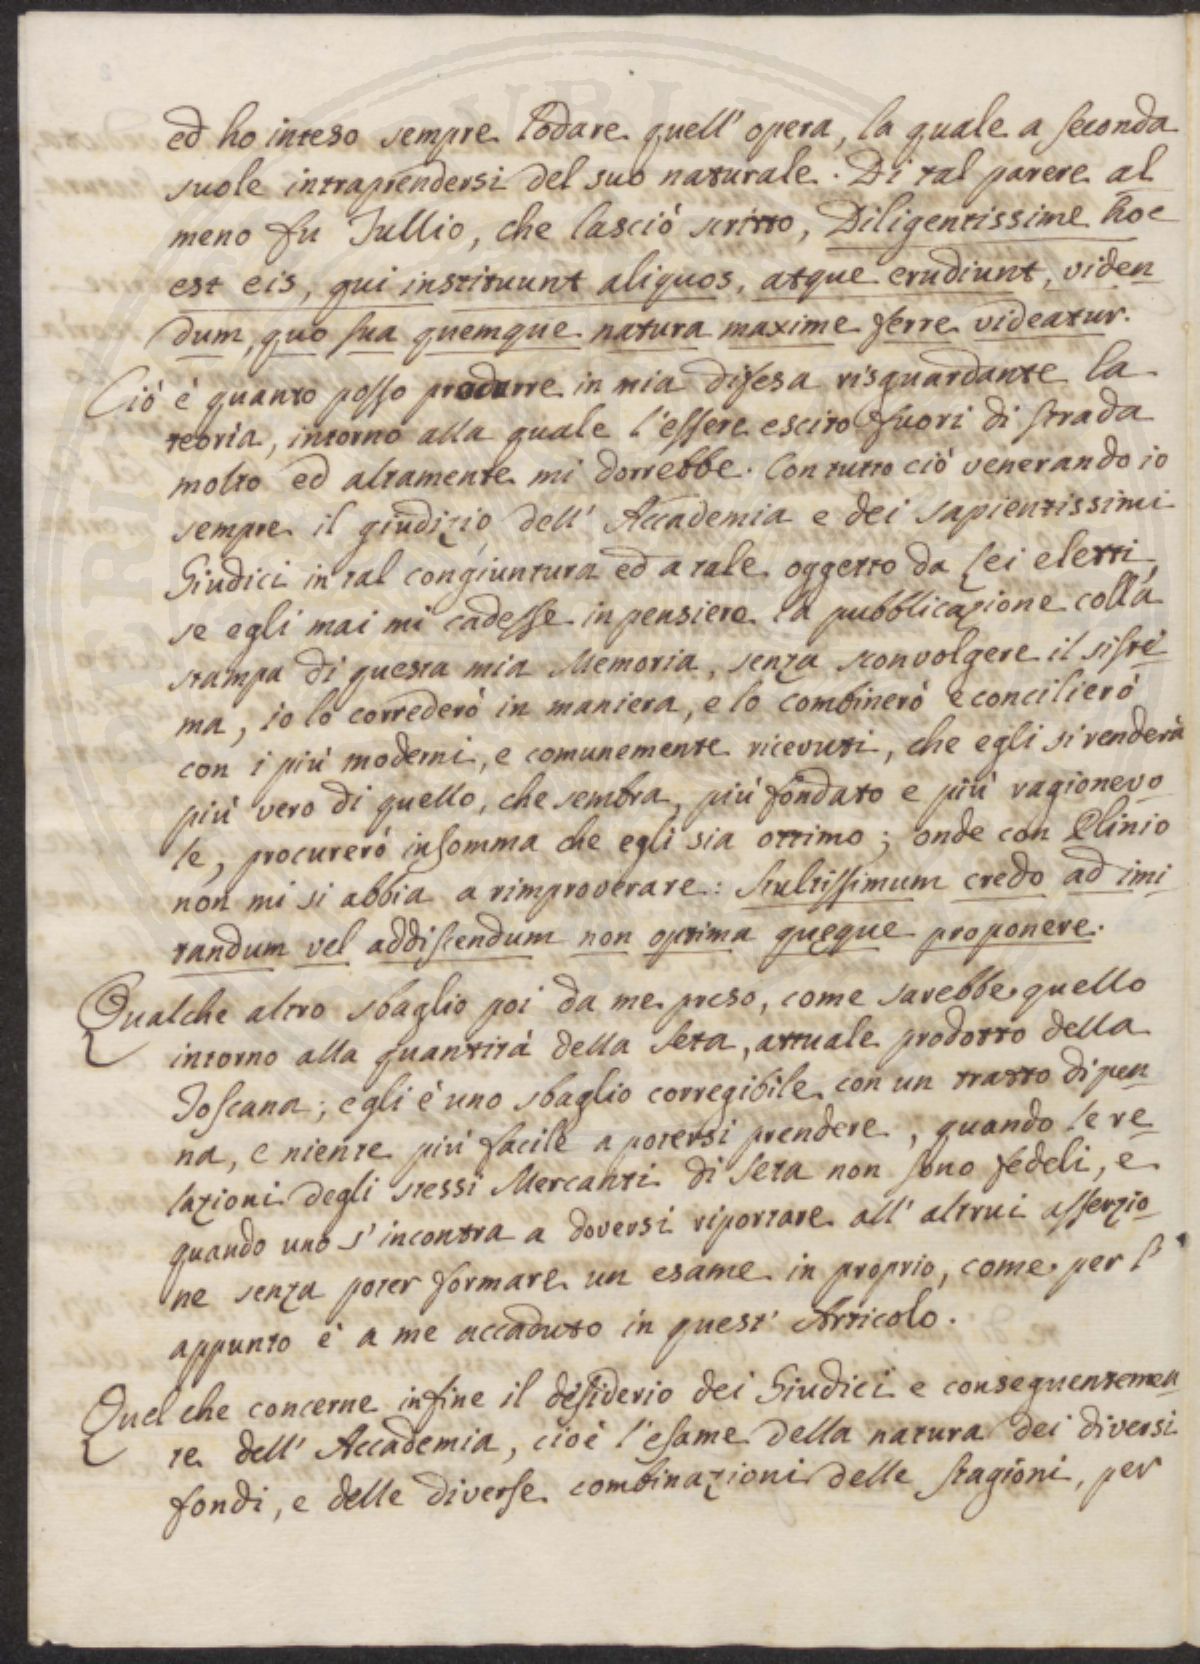 ed ho inteso sempre lodare quell' opera, la quale a seconda
suole intraprendersi del suo naturale. Di tal parere al
meno fu Tullio, che lasciò scritto, Diligentissime hoc
est eis, qui instituunt aliquos, atque erudiunt, viden
dum, quo sua quemque natura maxime ferre videatur.
Ciò è quanto posso produrre in mia difesa risguardante la
teoria, intorno alla quale l'essere escito fuori di strada
molto ed altamente mi dorrebbe. Con tutto ciò venerando io
sempre il giudizio dell' Accademia e dei sapientissimi
Giudici in tal congiuntura ed a tale oggetto da Lei eletti,
se egli mai mi cadesse in pensiere la pubblicazione colla
stampa di questa mia Memoria, senza sconvolgere il siste
ma, io lo correderò in maniera, e lo combinerò e concilierò
con i più moderni, e comunemente ricevuti, che egli si renderà
più vero di quello, che sembra, più fondato e più ragionevo
le, procurerò insomma che egli sia ottimo; onde con Plinio
non mi si abbia a rimproverare: stultissimum credo ad imi
tandum vel addiscendum non optima quęque proponere.
Qualche altro sbaglio poi da me preso, come sarebbe quello
intorno alla quantità della seta, attuale prodotto della
Toscana; egli è uno sbaglio corregibile con un tratto di pen
na, e niente più facile a potersi prendere, quando le re
lazioni degli stessi Mercanti di seta non sono fedeli, e
quando uno s'incontra a doversi riportare all' altrui asserzio
ne senza poter formare un esame in proprio, come per l'
appunto è a me accaduto in quest' Articolo.
Quel che concerne infine il desiderio dei Giudici e conseguentemen
te dell' Accademia, cioè l'esame della natura dei diversi
fondi, e delle diverse combinazioni delle stagioni, per